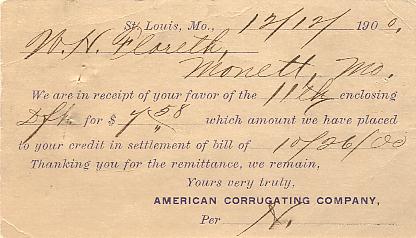 St. Louis, Mo., 12/12/ 1900.
W. H. Floreth,
Monett, Mo.
We are in receipt of your favor of the 11th enclosing
Dft. for $ 7 58 which amount we have placed
to your credit in settlement of bill of 10/26/00
Thanking you for the remittance, we remain,
Yours very truly,
AMERICAN CORRUGATING COMPANY,
Per